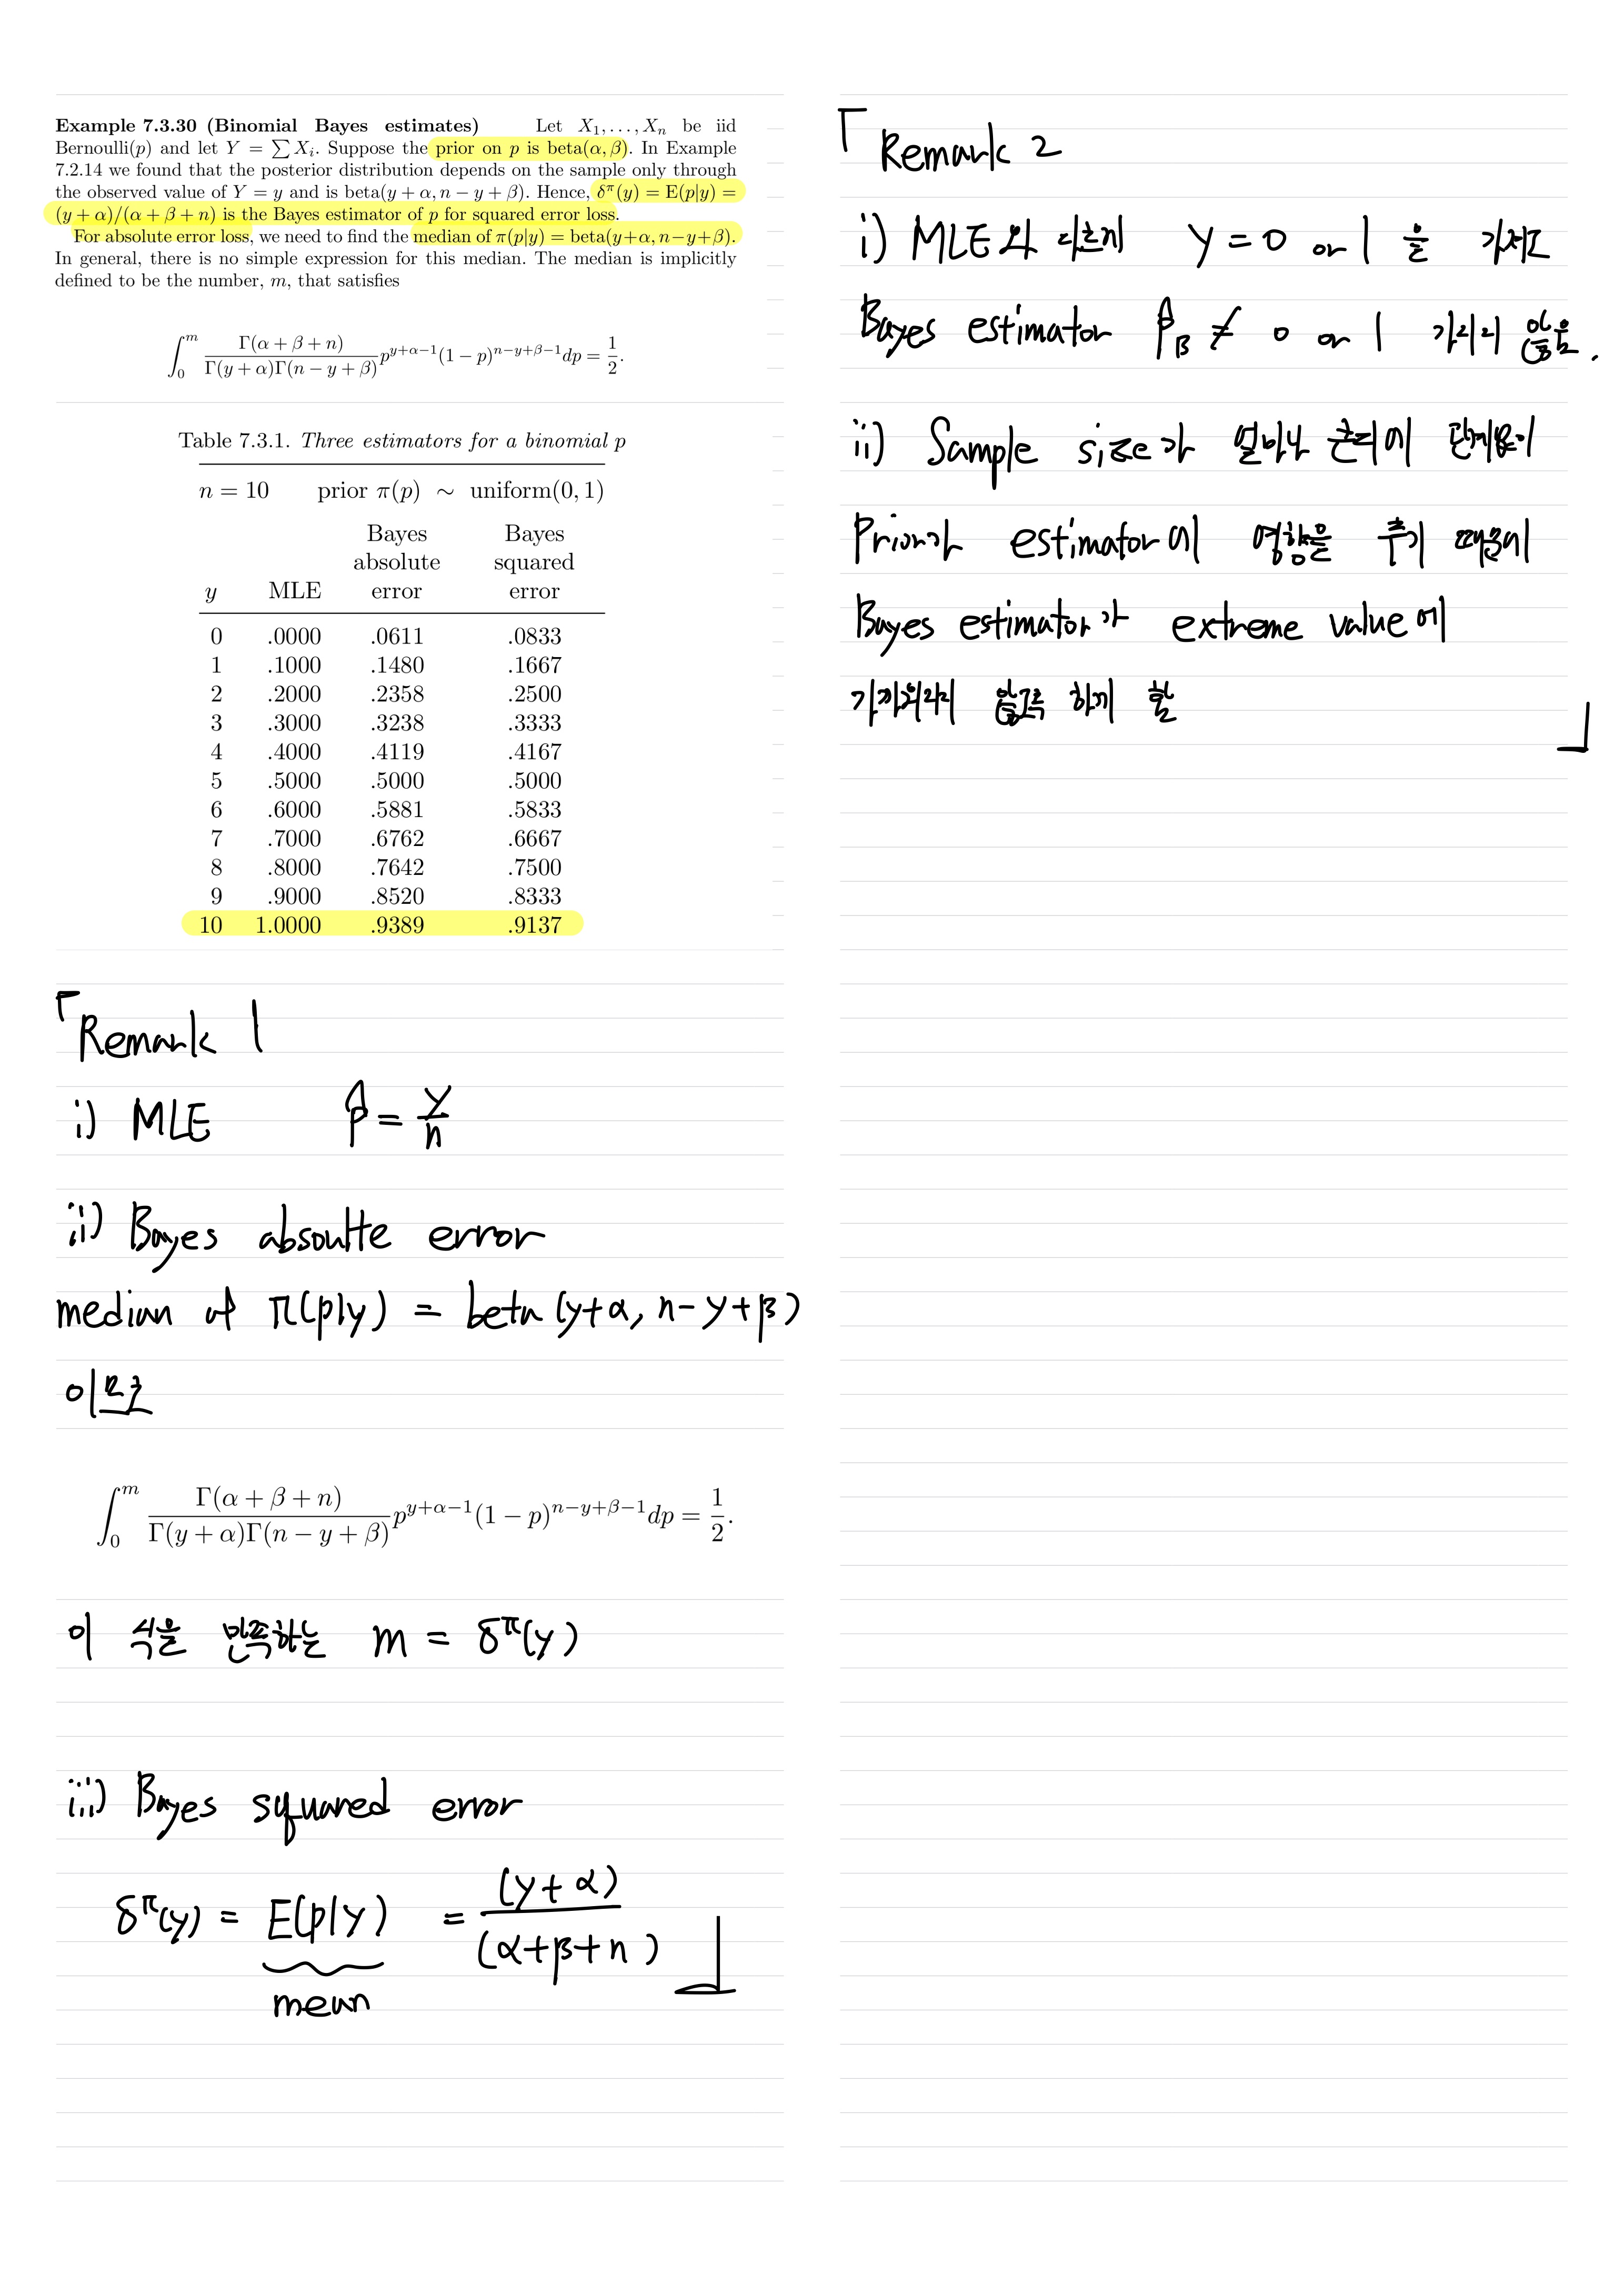 Example 7.3.30 (Binomial Bayes estimates) Let X₁, . . . , Xₙ be iid
Bernoulli(p) and let Y = ∑ Xᵢ. Suppose the prior on p is beta(α, β). In Example
7.2.14 we found that the posterior distribution depends on the sample only through
the observed value of Y = y and is beta(y + α, n − y + β). Hence, δ^π(y) = E(p|y) =
(y + α)/(α + β + n) is the Bayes estimator of p for squared error loss.
For absolute error loss, we need to find the median of π(p|y) = beta(y+α, n−y+β).
In general, there is no simple expression for this median. The median is implicitly
defined to be the number, m, that satisfies
∫₀^m Γ(α + β + n) / (Γ(y + α)Γ(n − y + β)) p^(y+α−1) (1 − p)^(n−y+β−1) dp = 1/2.
Table 7.3.1. Three estimators for a binomial p
n = 10 prior π(p) ∼ uniform(0, 1)
Bayes Bayes
absolute squared
y MLE error error
0 .0000 .0611 .0833
1 .1000 .1480 .1667
2 .2000 .2358 .2500
3 .3000 .3238 .3333
4 .4000 .4119 .4167
5 .5000 .5000 .5000
6 .6000 .5881 .5833
7 .7000 .6762 .6667
8 .8000 .7642 .7500
9 .9000 .8520 .8333
10 1.0000 .9389 .9137
「Remark 1
i) MLE p̂ = y/n
ii) Bayes absoultte error
median of π(p|y) = beta (y+α, n−y+β)
이므로
∫₀^m Γ(α + β + n) / (Γ(y + α)Γ(n − y + β)) p^(y+α−1) (1 − p)^(n−y+β−1) dp = 1/2.
이 식을 만족하는 m = δ^π(y)
iii) Bayes squared error
δ^π(y) = E(p|y) = (y+α) / (α+β+n) 」
mean
「Remark 2
i) MLE와 다르게 Y = 0 or 1 을 가져도
Bayes estimator p̂_B ≠ 0 or 1 가지지 않음.
ii) Sample size가 얼마나 큰지에 관계없이
Prior가 estimator에 영향을 주기 때문에
Bayes estimator가 extreme value에
가까워지지 않도록 하게 함
」